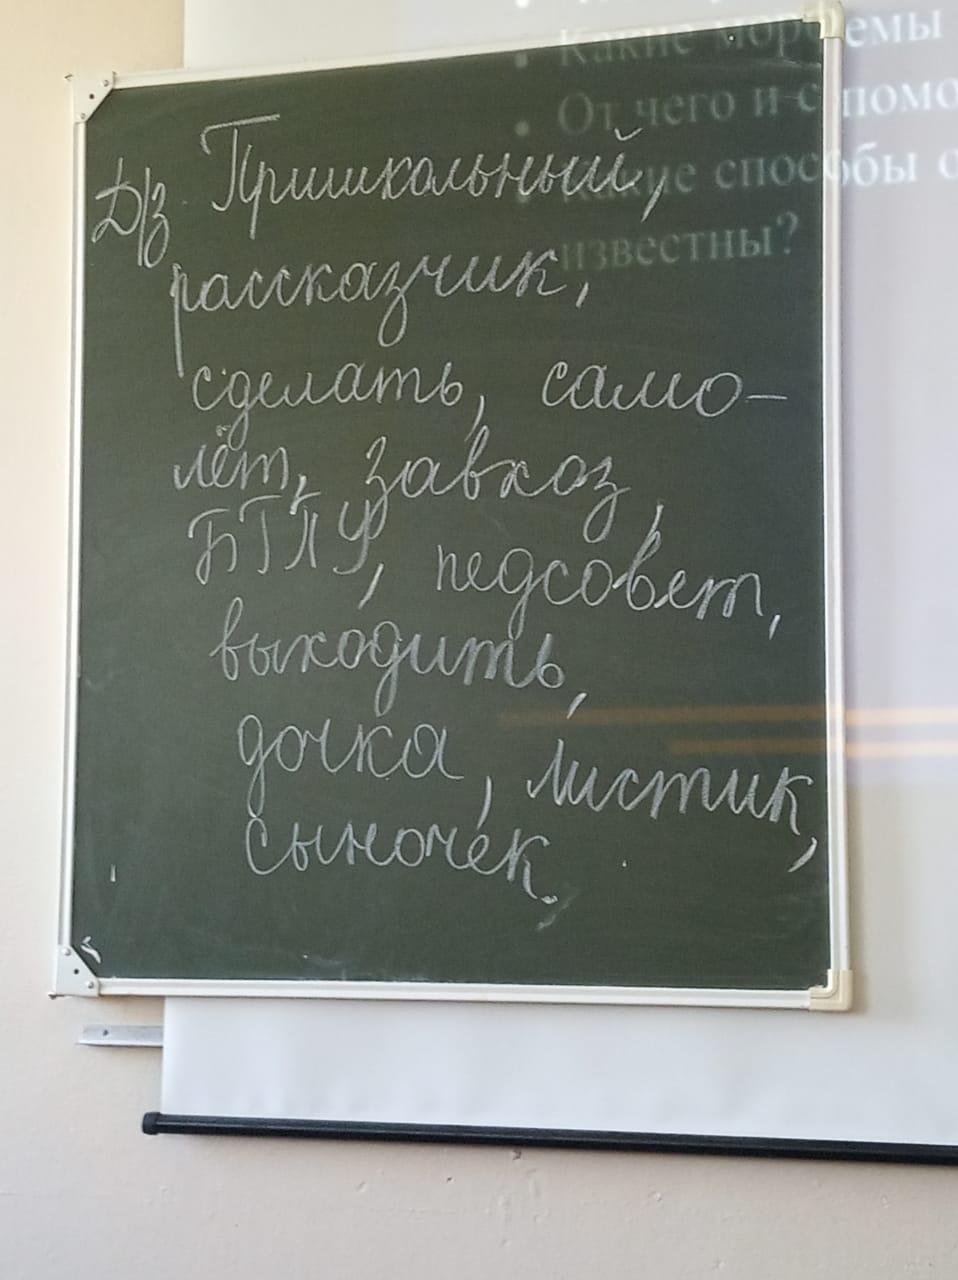 Какие морфемы
От чего и с помо
Какие способы о
известны?
Д/з Пришкольный,
рассказчик,
сделать, само-
лёт, завхоз,
БГПУ, педсовет,
выходить,
дочка, листик,
сыночек.